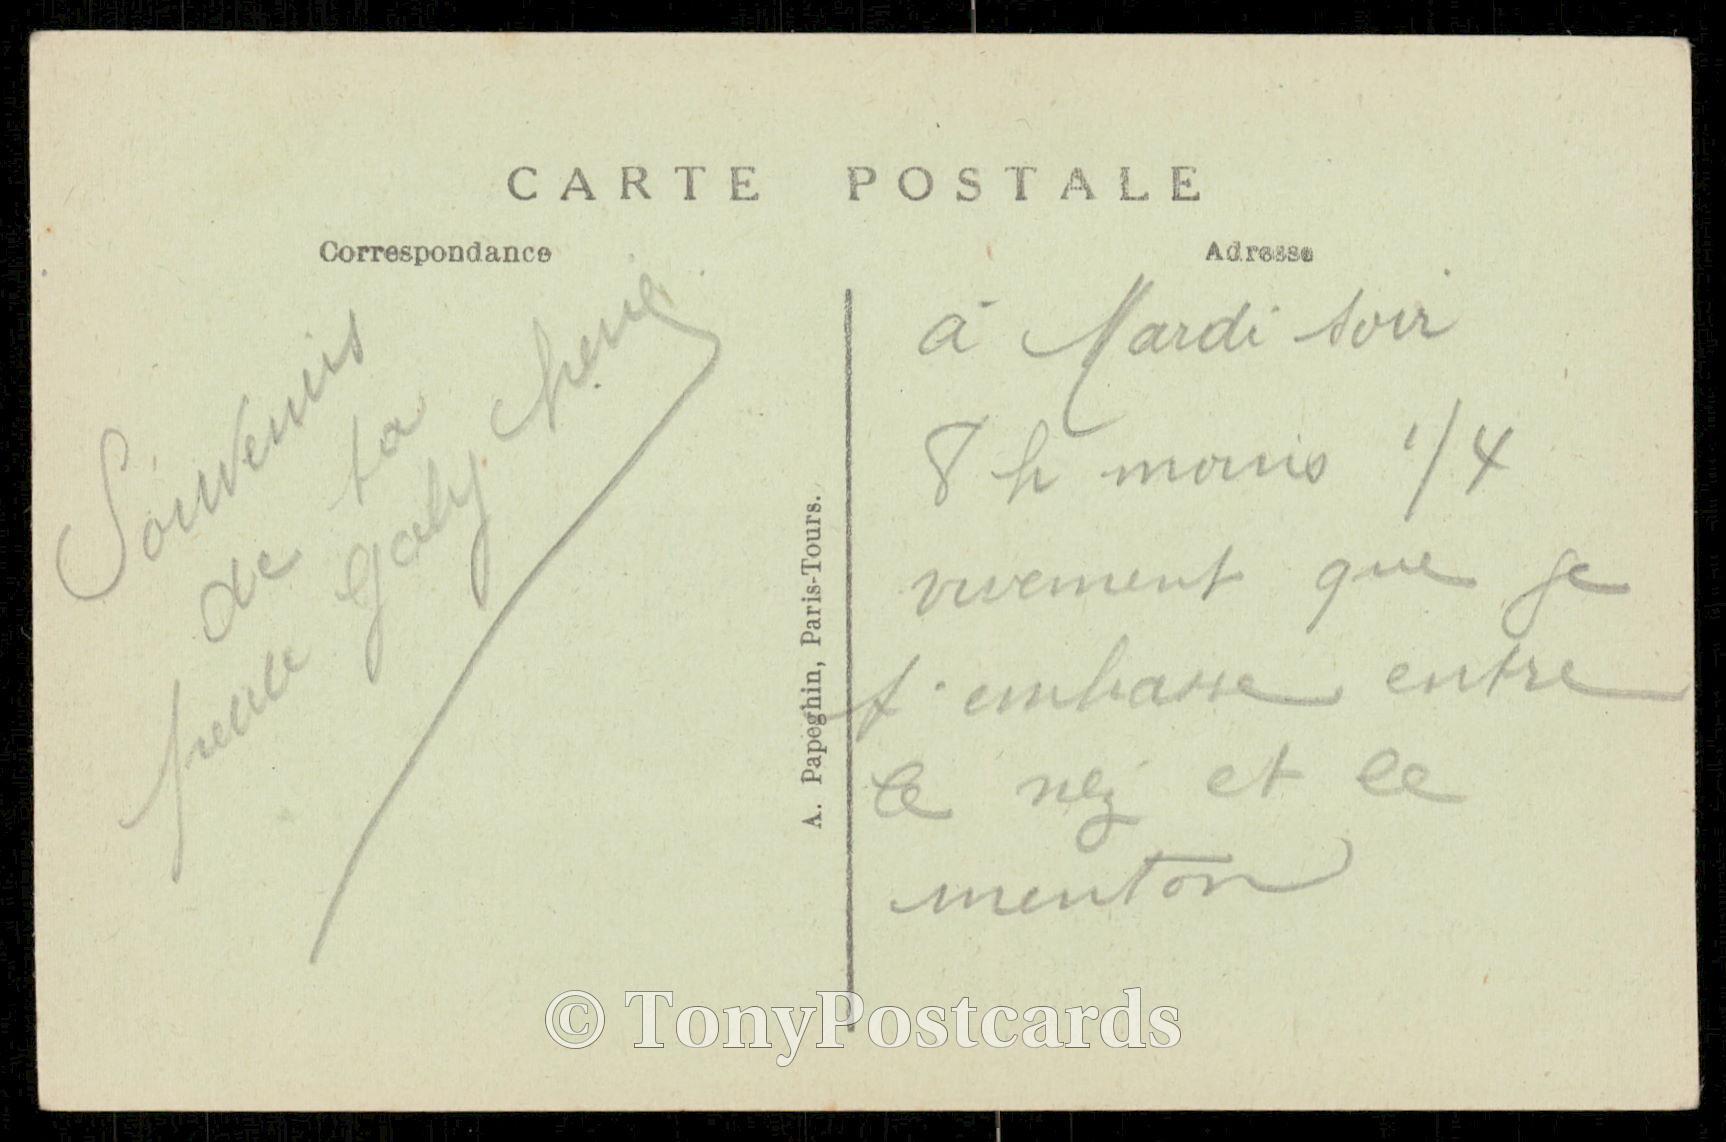 CARTE POSTALE
Correspondance
Adresse
Souvenirs
de ta
Gaby
à Mardi soir
8 h moins 1/4
vivement que je
t'embasse entre
le nez et le
menton
A. Papeghin, Paris-Tours.
© TonyPostcards